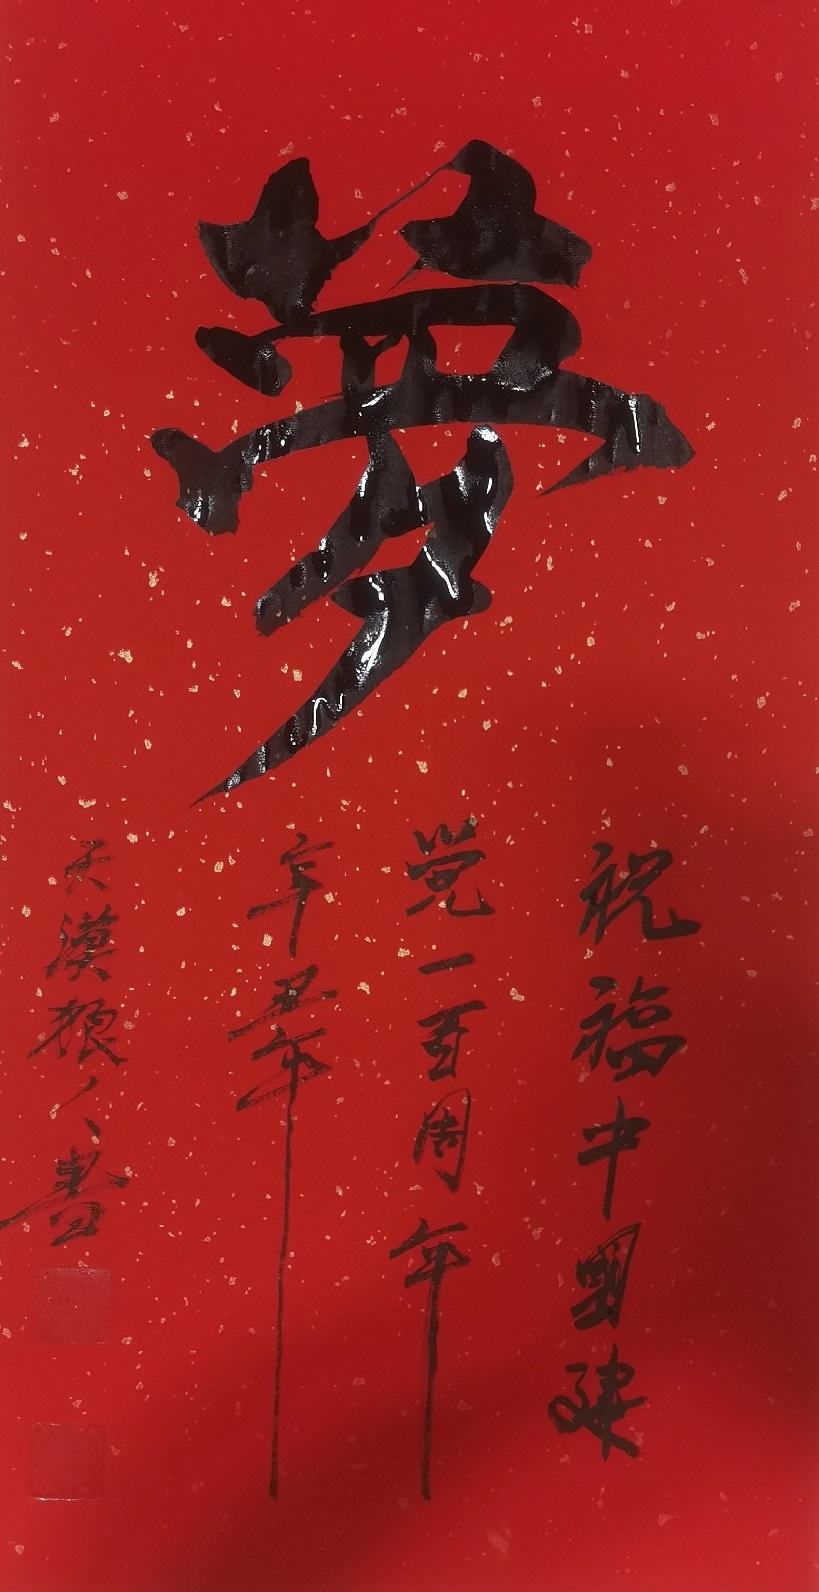 夢
祝福中國建
党一百周年
辛丑年
天漠狼人书